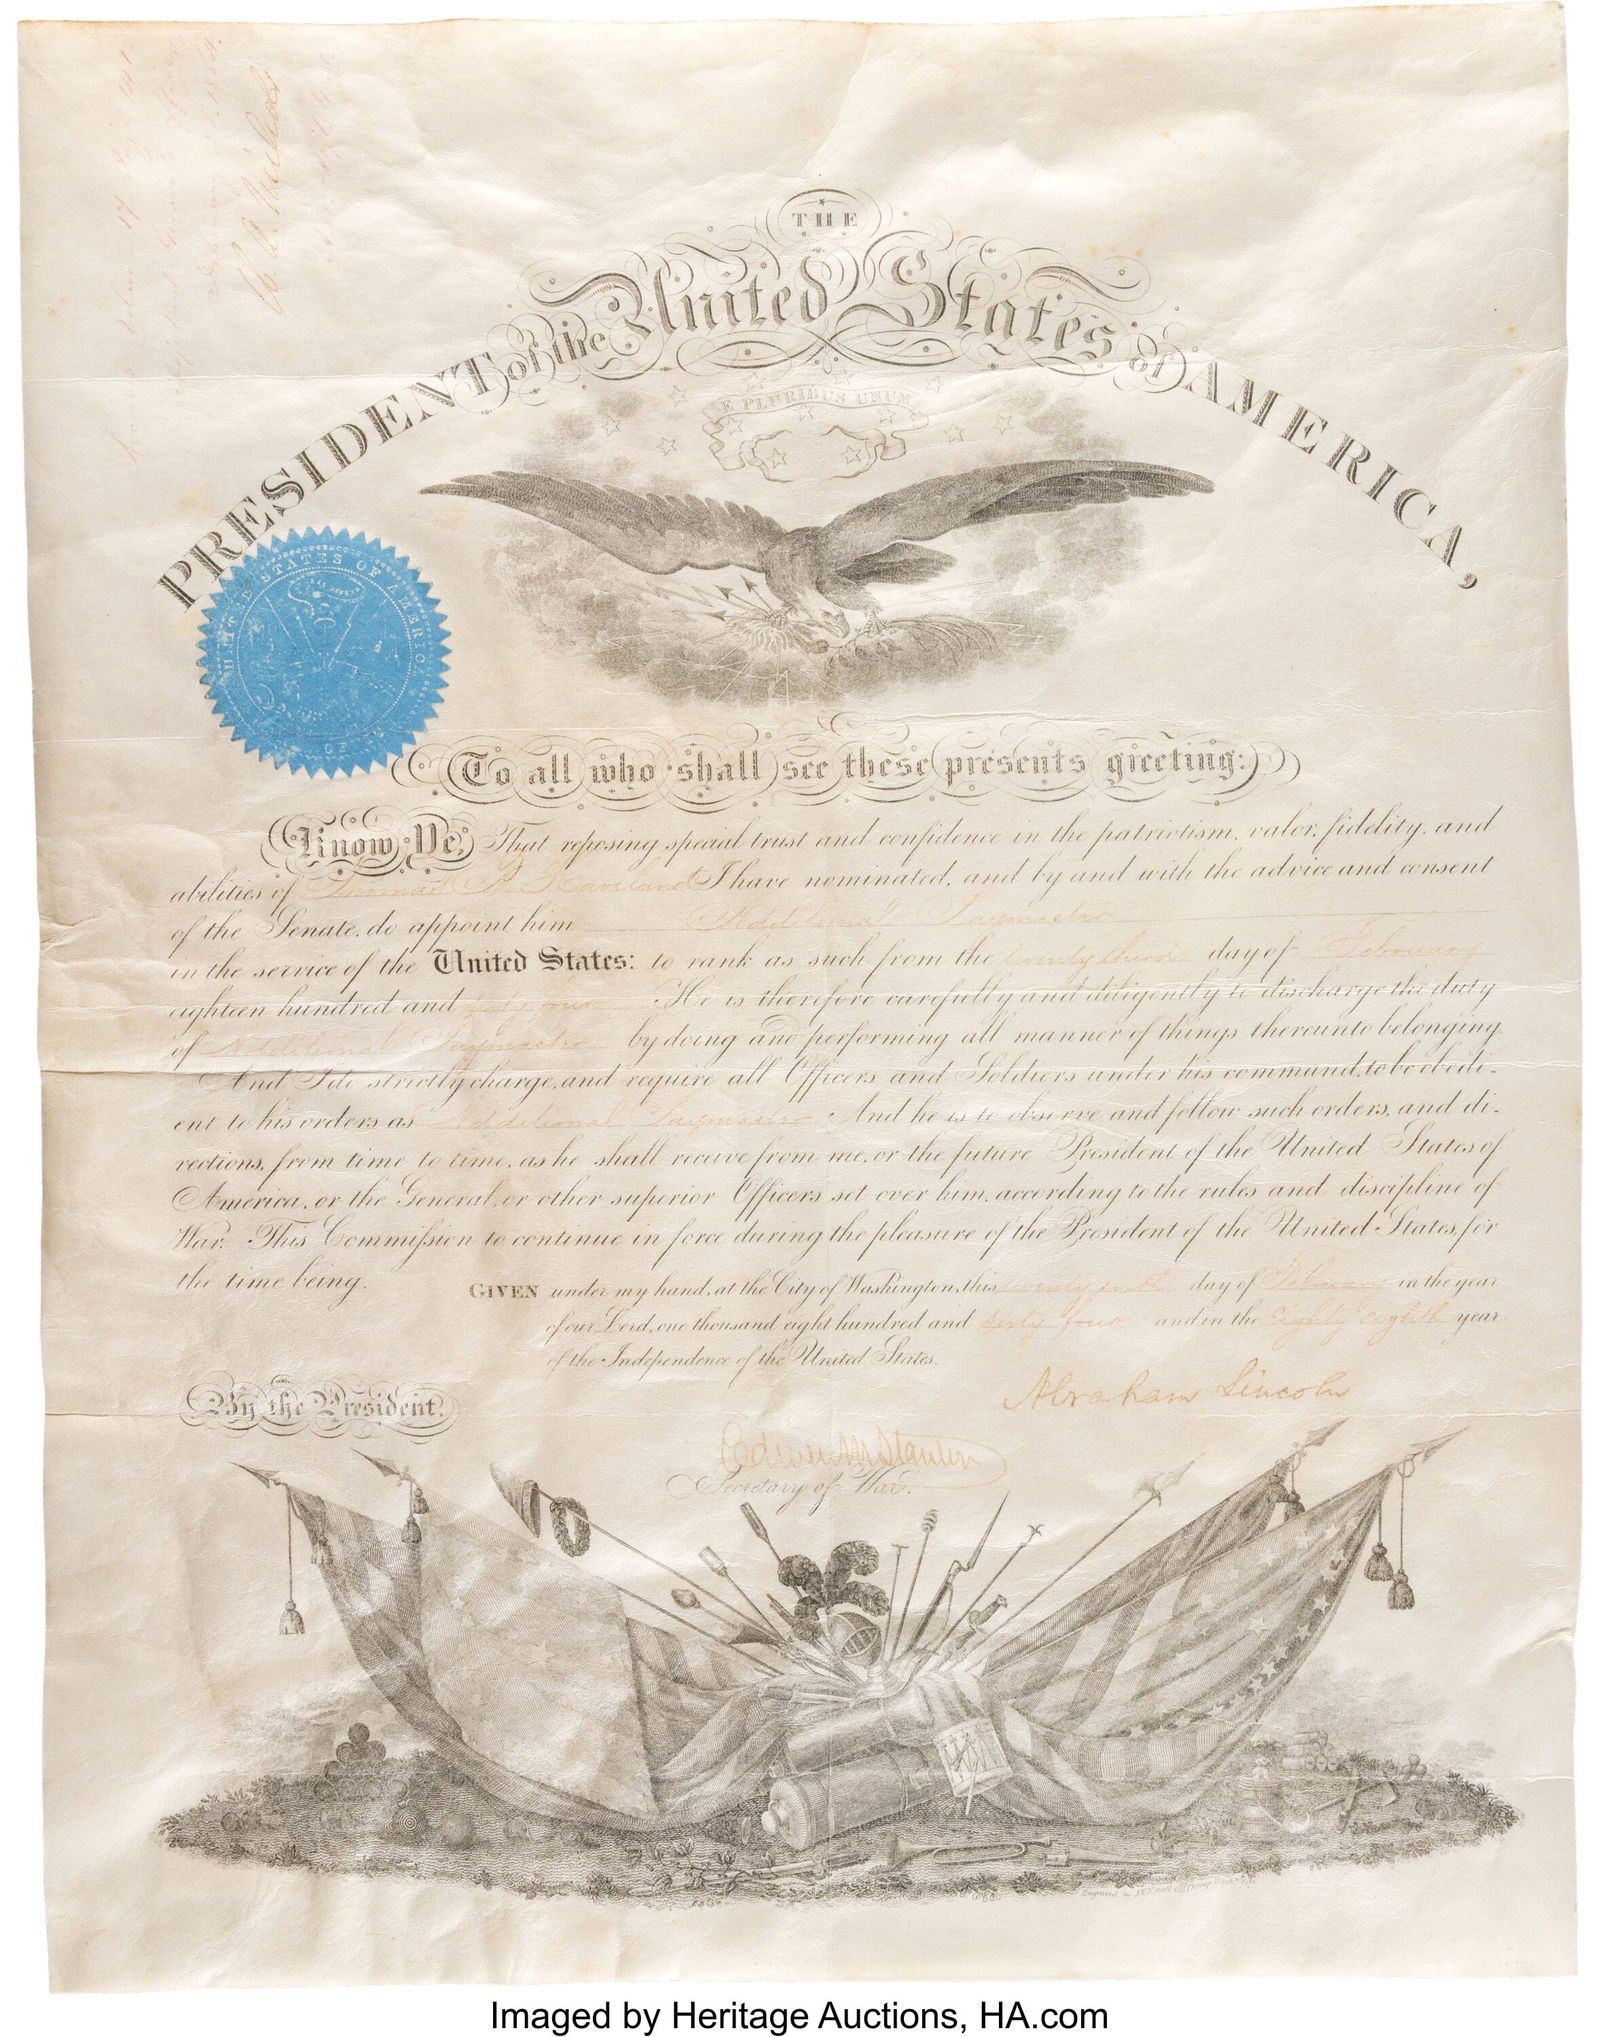 THE
PRESIDENT of the United States of AMERICA,
E PLURIBUS UNUM
UNITED STATES OF AMERICA
To all who shall see these presents greeting:
Know Ye, That reposing special trust and confidence in the patriotism, valor, fidelity, and
abilities of Thomas P. Haviland I have nominated, and by and with the advice and consent
of the Senate, do appoint him Additional Paymaster
in the service of the United States: to rank as such from the twenty third day of February
eighteen hundred and sixty four He is therefore carefully and diligently to discharge the duty
of Additional Paymaster by doing and performing all manner of things thereunto belonging.
And I do strictly charge, and require all Officers and Soldiers under his command, to be obedi-
ent to his orders as Additional Paymaster. And he is to observe and follow such orders, and di-
rections, from time to time, as he shall receive from me, or the future President of the United States of
America, or the General, or other superior Officers set over him, according to the rules and discipline of
War. This Commission to continue in force during the pleasure of the President of the United States, for
the time being.
GIVEN under my hand, at the City of Washington, this day of February in the year
of our Lord, one thousand eight hundred and sixty four and in the Eighty eighth year
of the Independence of the United States.
Abraham Lincoln
By the President,
Edwin M Stanton
Secretary of War.
Engraved by
Imaged by Heritage Auctions, HA.com